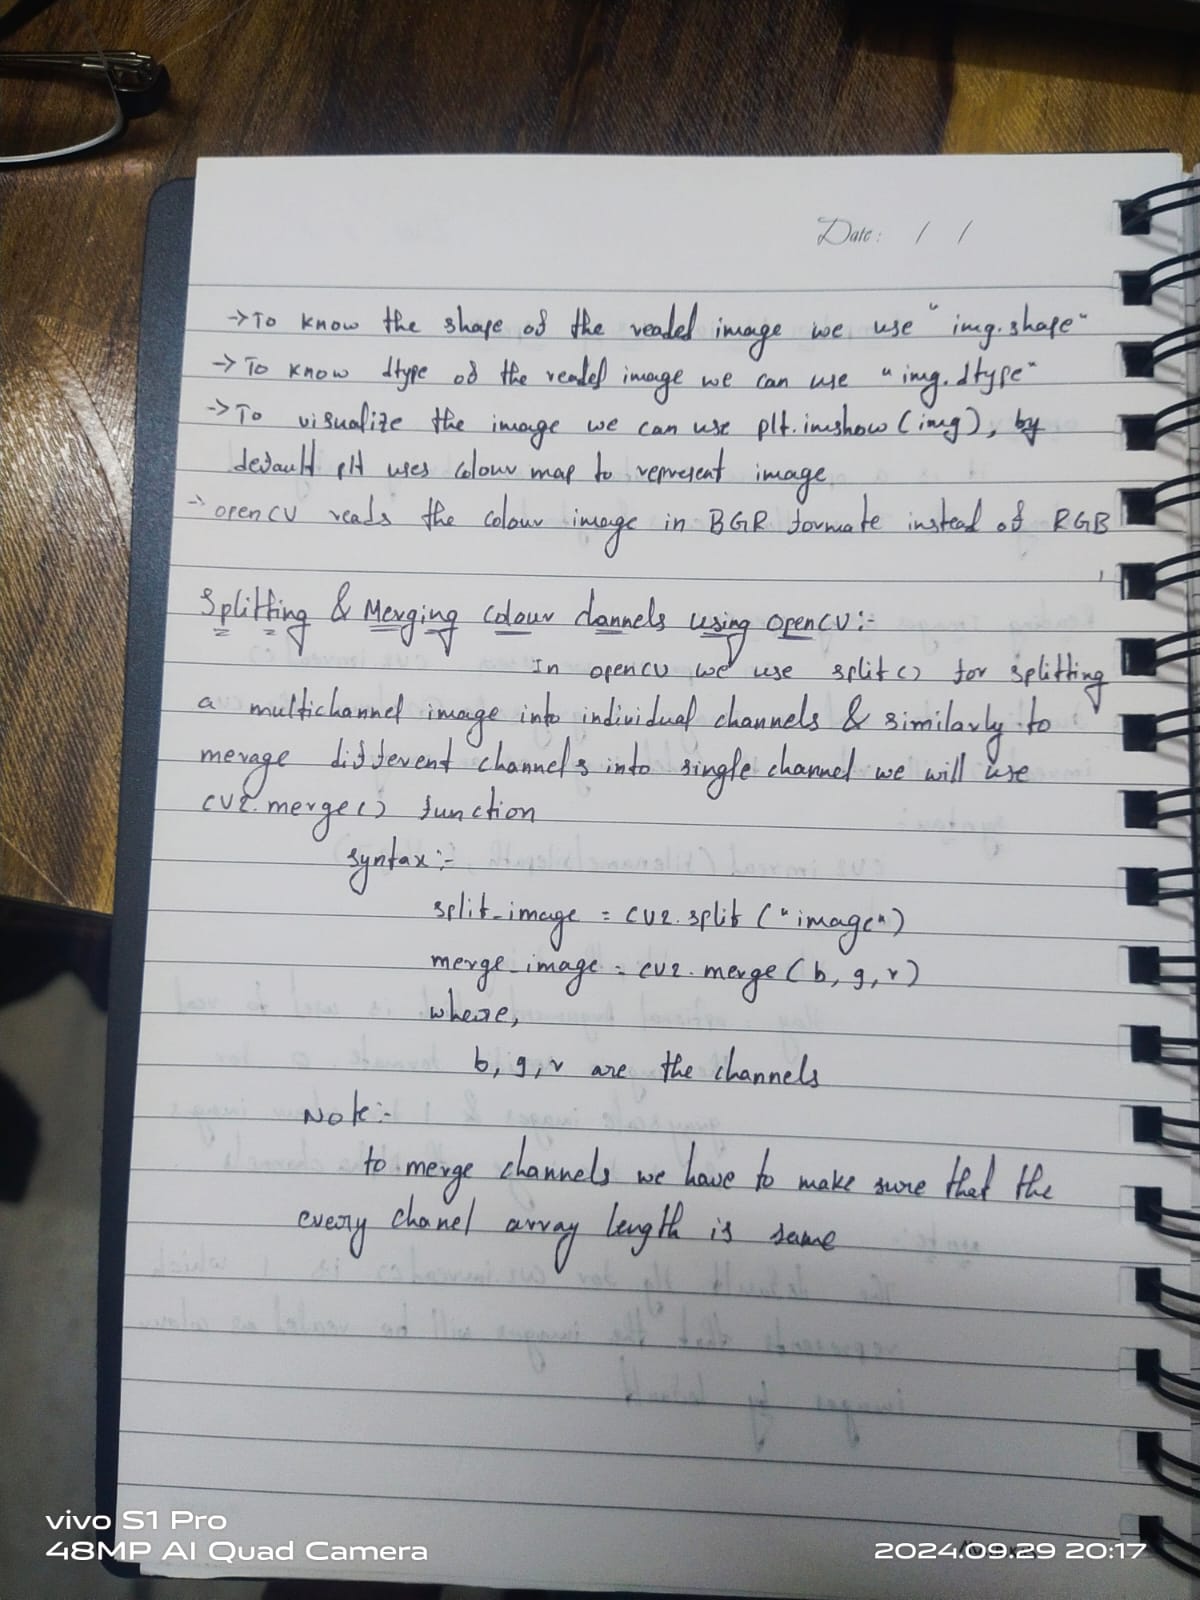 Date: / /
->To know the shape of the readed image we use "img.shape"
-> To know dtype of the readed image we can use "img.dtype"
->To visualize the image we can use plt.imshow(img), by
default plt uses colour map to represent image
-> opencv reads the colour image in BGR formate instead of RGB
Splitting & Merging colour channels using opencv:-
In opencv we use split() for splitting
a multichannel image into individual channels & similarly to
merage different channels into single channel we will use
cv2.merge() function
syntax:-
split_image = cv2.split("image")
merge_image = cv2.merge(b, g, r)
where,
b, g, r are the channels
Note:-
to merge channels we have to make sure that the
every chanel array length is same
vivo S1 Pro
48MP AI Quad Camera
2024.09.29 20:17